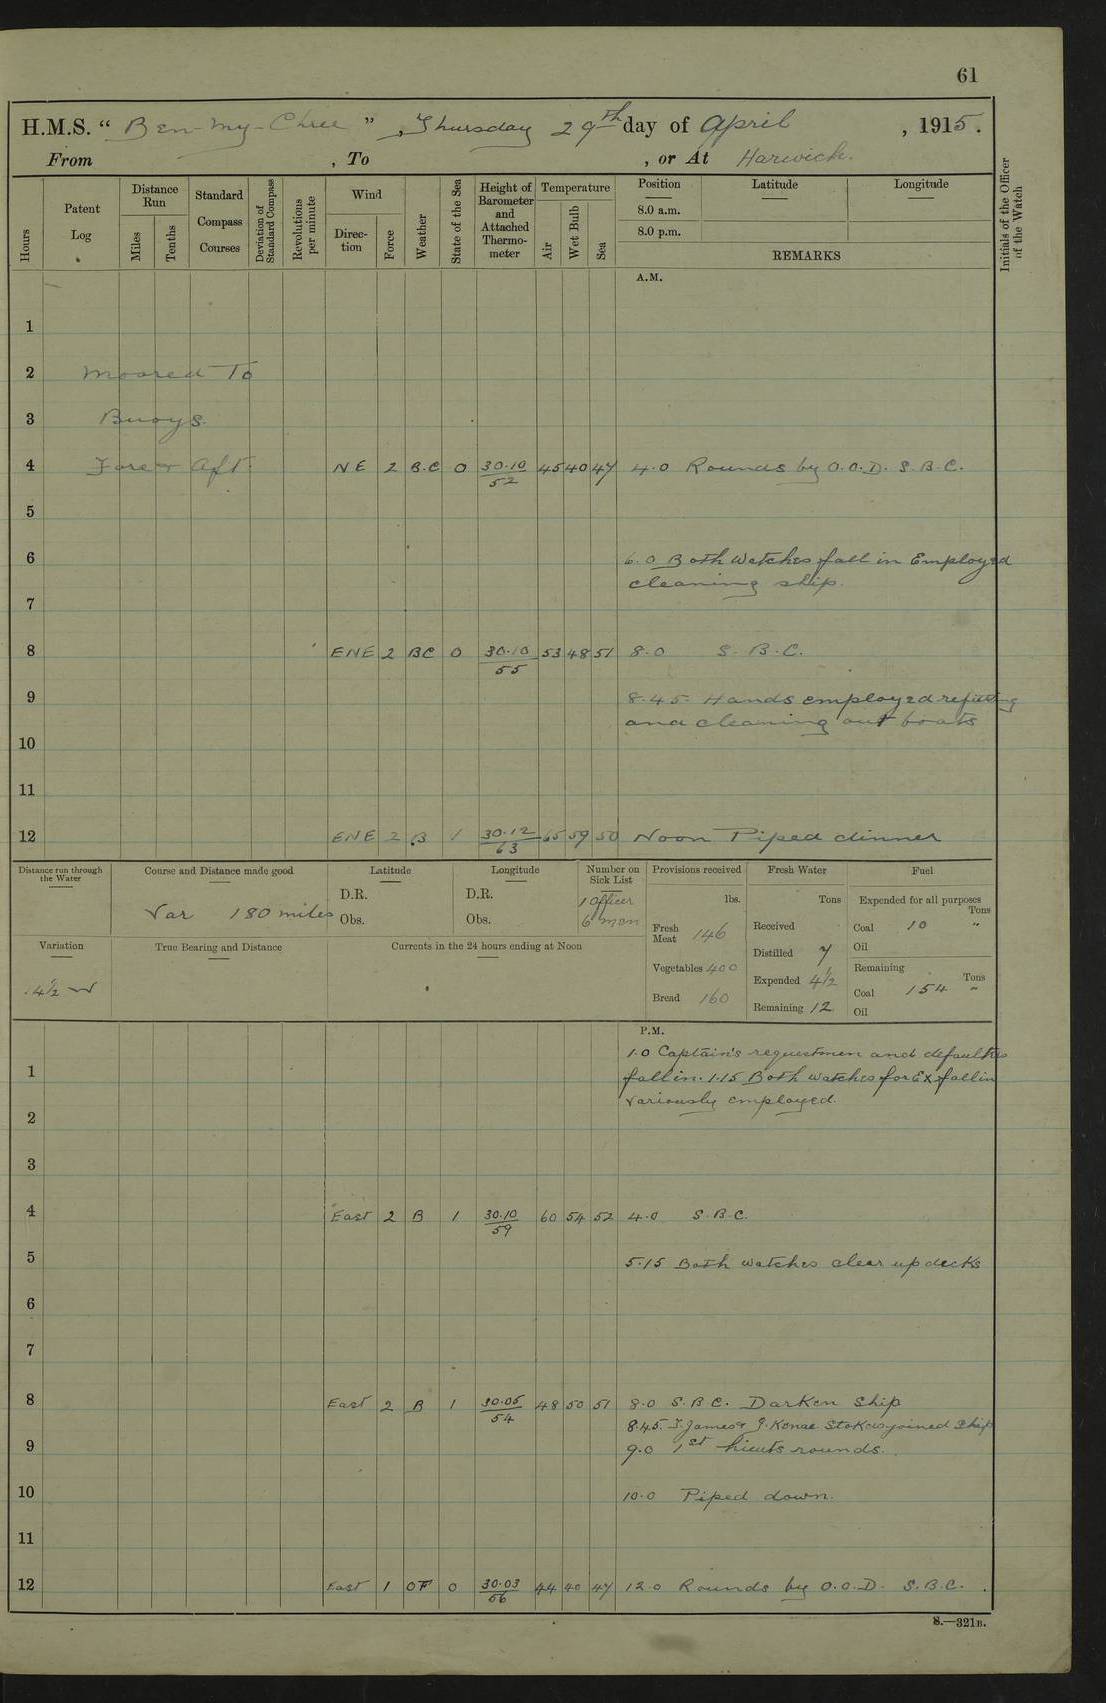 61
H.M.S. “ Ben-my-Chree ” , Thursday 29th day of April , 1915.
From , To , or At Harwich.
Hours
Patent Log
Distance Run
Miles
Tenths
Standard Compass Courses
Deviation of Standard Compass
Revolutions per minute
Wind
Direction
Force
Weather
State of the Sea
Height of Barometer and Attached Thermometer
Temperature
Air
Wet Bulb
Sea
Position Latitude Longitude
8.0 a.m.
8.0 p.m.
REMARKS
Initials of the Officer of the Watch
A.M.
1
2 Moored To
3 Buoys.
4 Fore & Aft. NE 2 B.C 0 30.10/52 45 40 47 4.0 Rounds by O.O.D. S.B.C.
5
6 6.0 Both Watches fall in Employed
cleaning ship.
7
8 ENE 2 BC 0 30.10/55 53 48 51 8.0 S.B.C.
9 8.45 Hands employed refitting
and cleaning out boats
10
11
12 ENE 2 B 1 30.12/63 65 59 50 Noon Piped dinner
Distance run through the Water
Course and Distance made good
Var 180 miles
Latitude
D.R.
Obs.
Longitude
D.R.
Obs.
Number on Sick List
1 Officer
6 men
Provisions received
lbs.
Fresh Meat 146
Vegetables 400
Bread 160
Fresh Water
Tons
Received
Distilled 7
Expended 4½
Remaining 12
Fuel
Expended for all purposes
Tons
Coal 10 "
Oil
Remaining
Tons
Coal 154 "
Oil
Variation
True Bearing and Distance
Currents in the 24 hours ending at Noon
P.M.
1.0 Captain's requestmen and defaulters
1 fall in. 1.15 Both watches for Ex fall in
variously employed.
2
3
4 East 2 B 1 30.10/59 60 54 52 4.0 S.B.C.
5 5.15 Both watches clear up decks
6
7
8 East 2 B 1 30.05/54 48 50 51 8.0 S.B.C. Darken Ship
8.45. James & J. Stokers joined Ship
9 9.0 1st rounds.
10 10.0 Piped down.
11
12 East 1 OF 0 30.03/56 44 40 47 12.0 Rounds by O.O.D. S.B.C.
S.—321B.